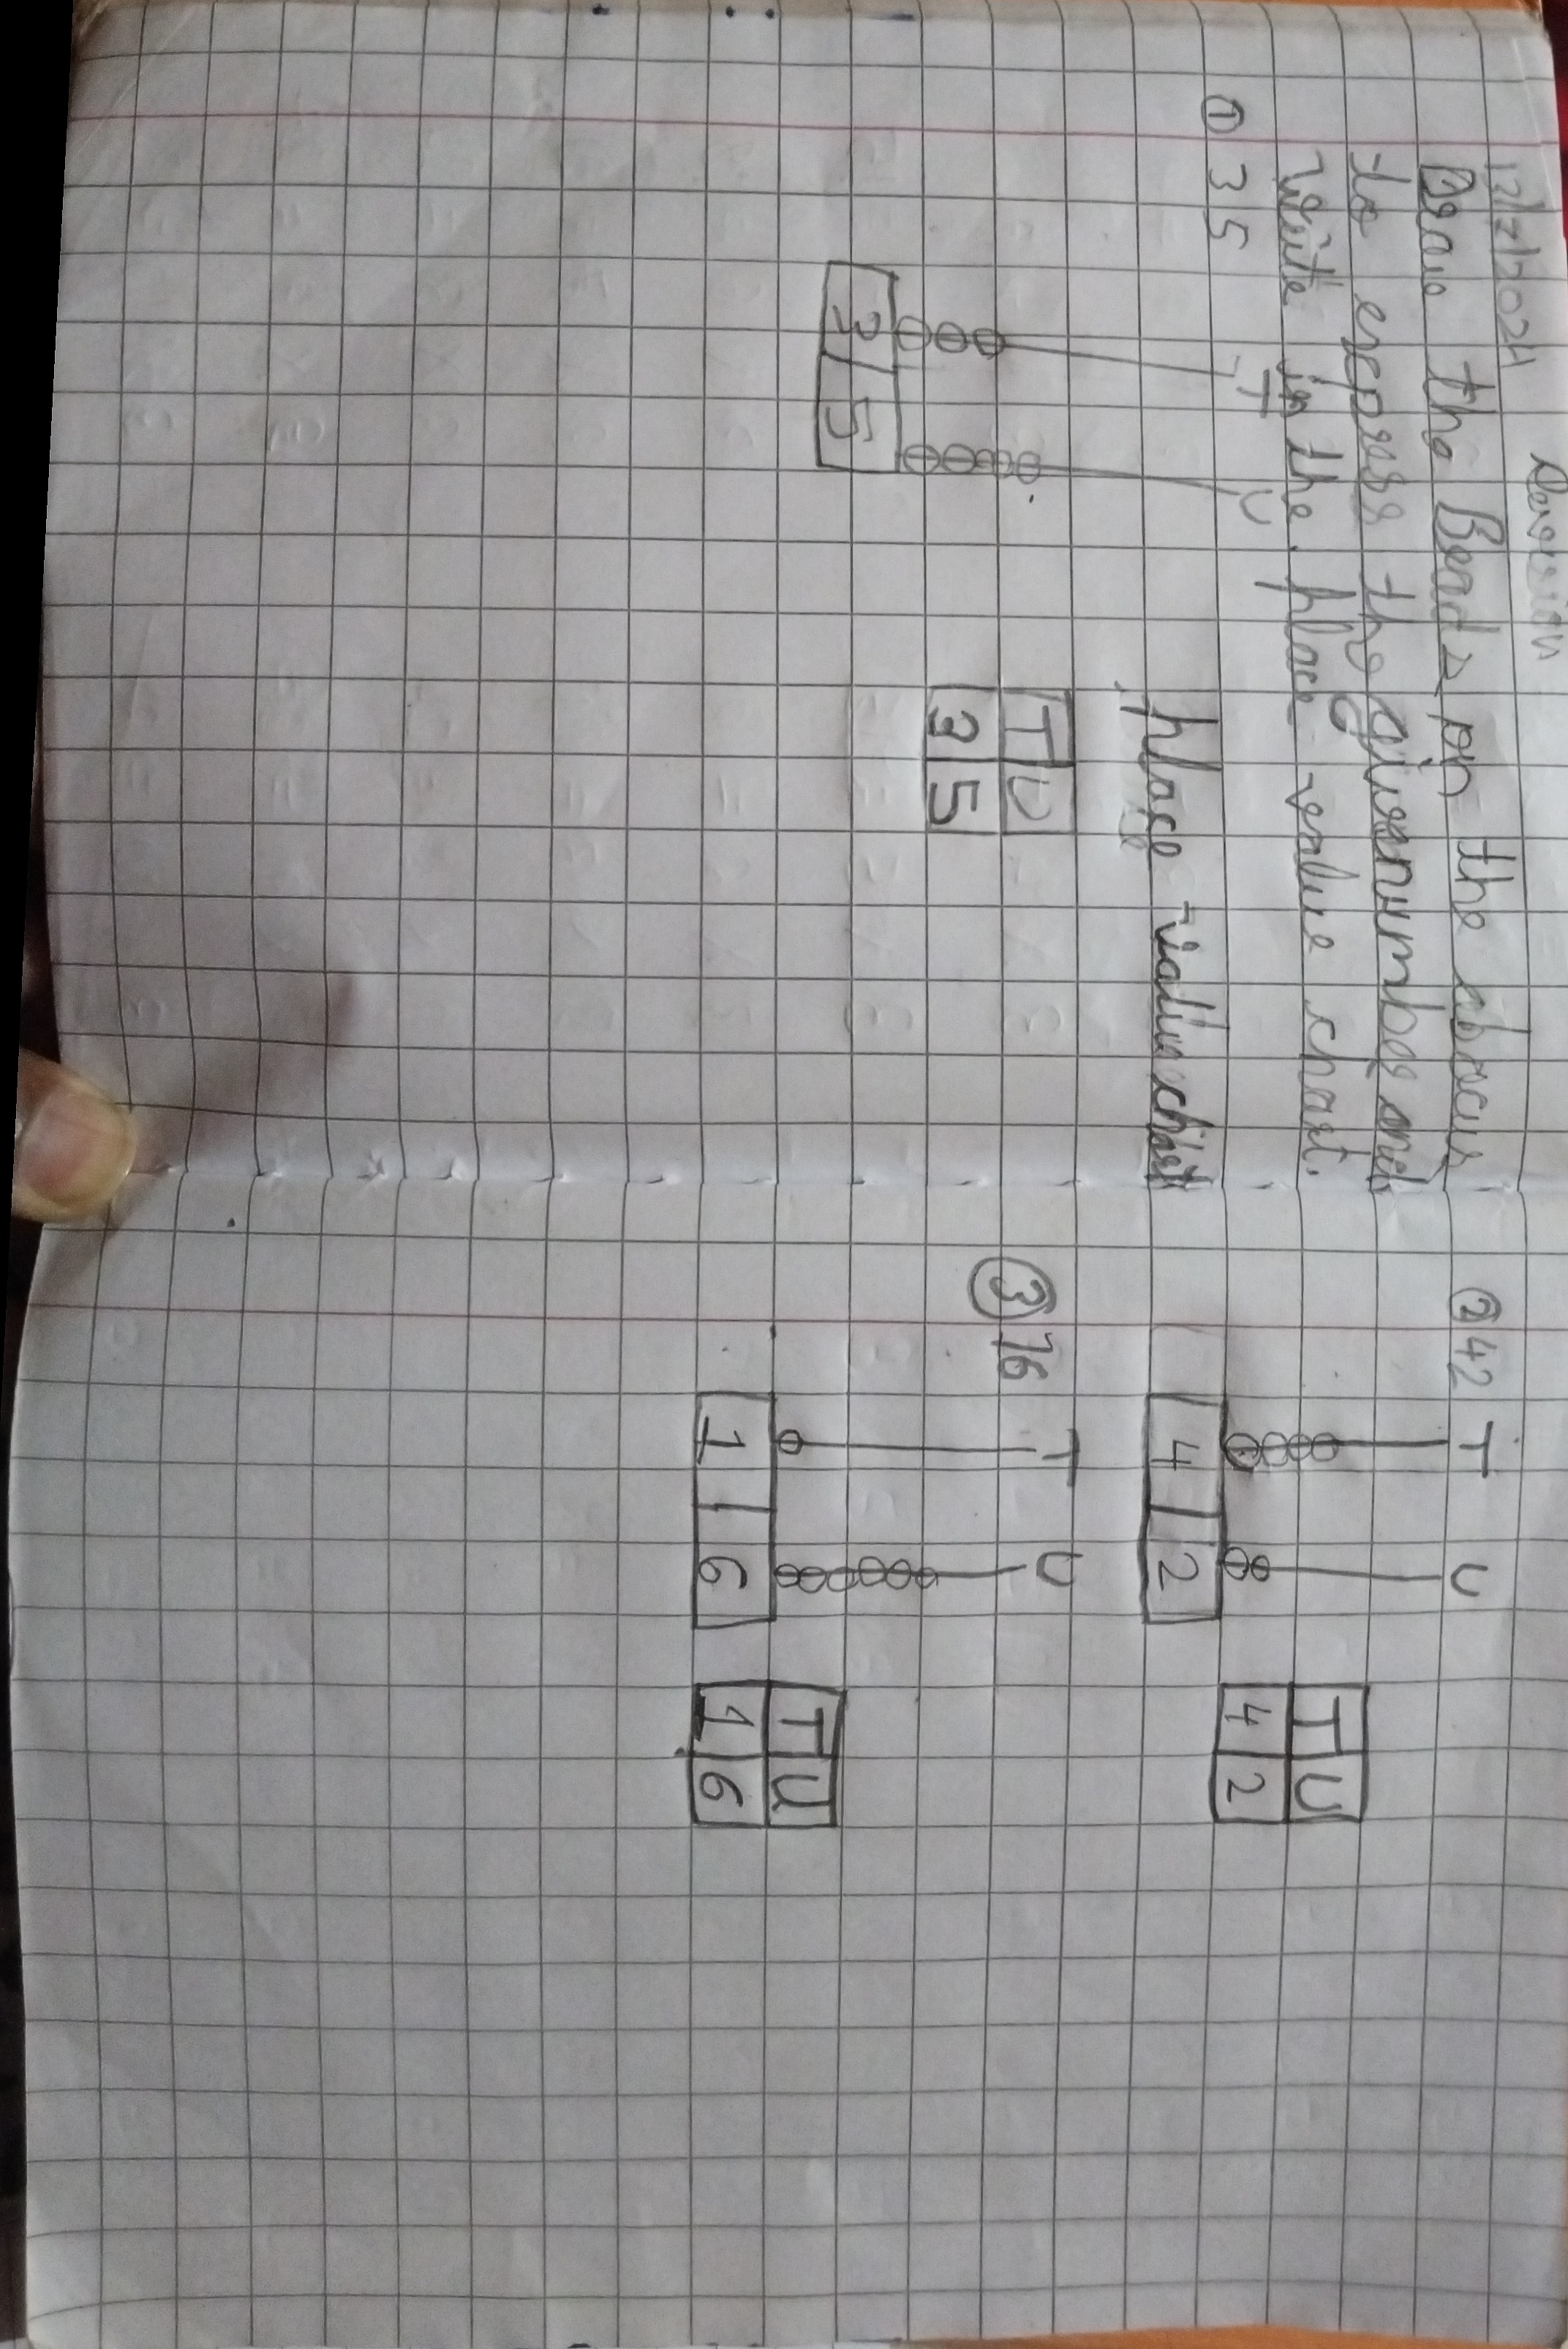 Revision
12/7/2021
Draw the Beads on the abacus
to express the given number and
write in the place value chart.
① 35
T U
3 5
place value chart
T U
3 5
② 42
T U
4 2
T U
4 2
③ 16
T U
1 6
T U
1 6